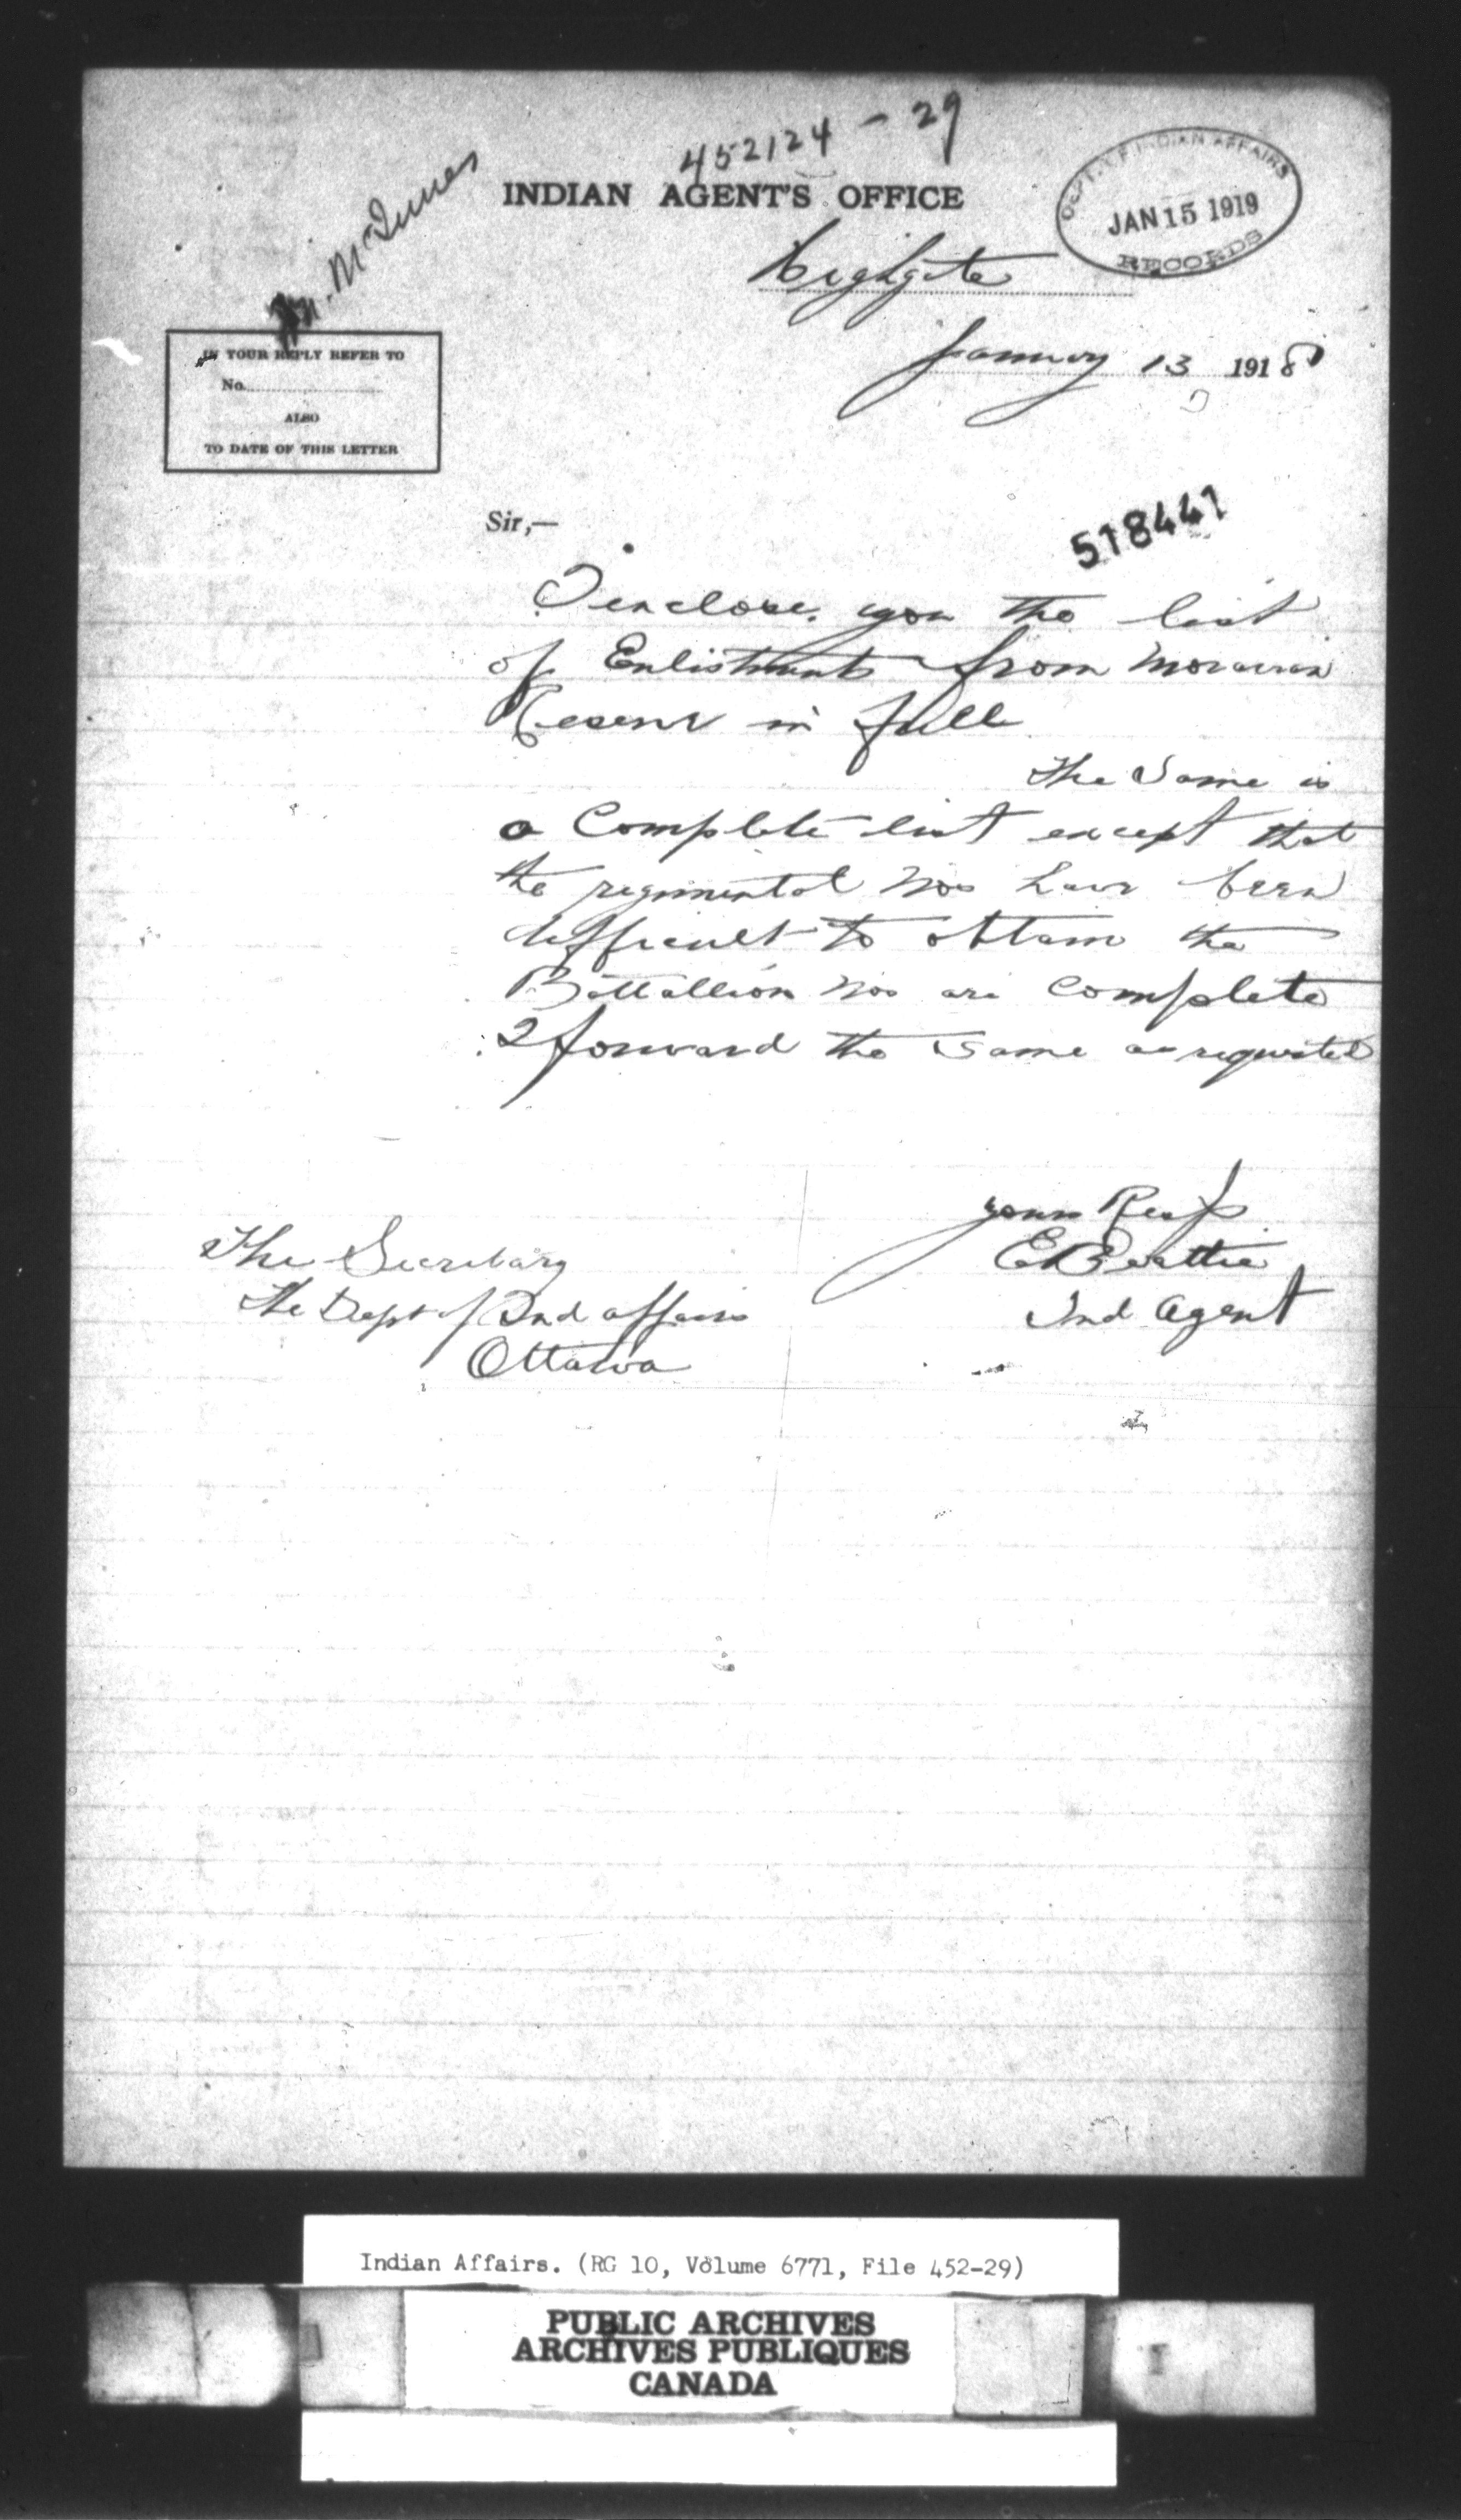 452124 - 29
INDIAN AGENT'S OFFICE
DEPT. OF INDIAN AFFAIRS
JAN 15 1919
RECORDS
Mr. McInnes
Highgate
January 13 1918
IN YOUR REPLY REFER TO
No.
ALSO
TO DATE OF THIS LETTER
Sir,—
518441
I enclose you the list
of Enlistments from Moravian
Reserve in full
The Same is
a Complete list except that
the regimental Nos have been
difficult to obtain the
Battallion Nos are Complete
I forward the same as requested
yours Resp
E Beattie
Ind Agent
The Secretary
The Dept of Ind affairs
Ottawa
Indian Affairs. (RG 10, Volume 6771, File 452-29)
PUBLIC ARCHIVES
ARCHIVES PUBLIQUES
CANADA